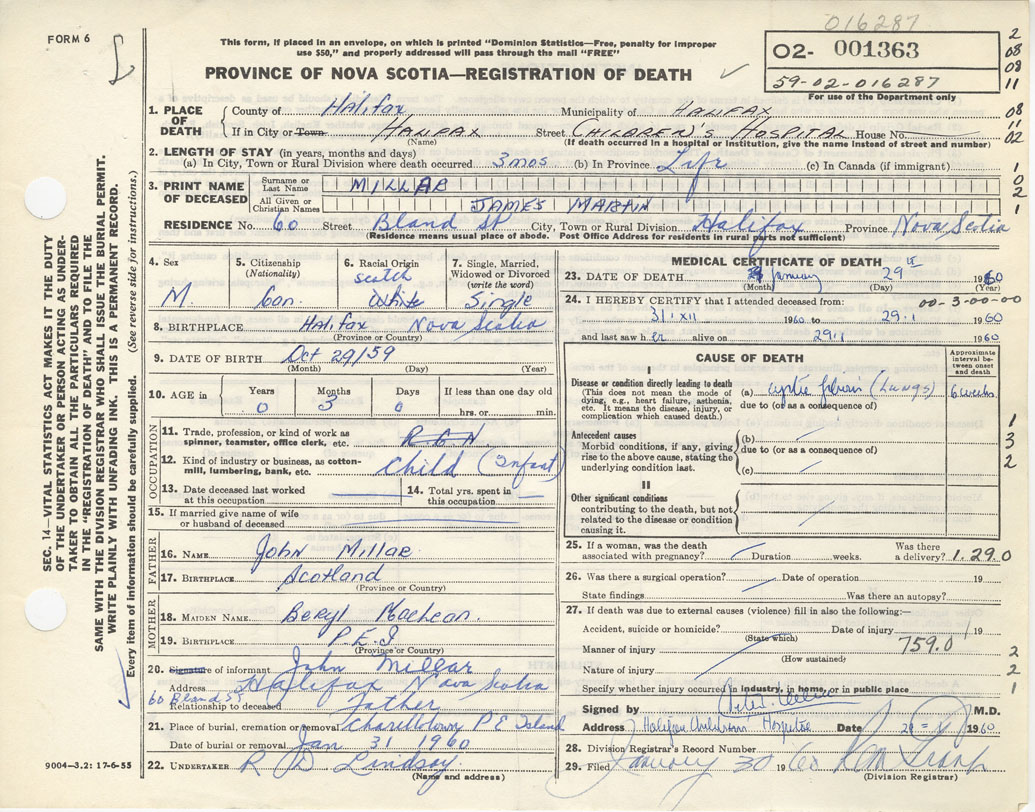 016287
FORM 6
This form, if placed in an envelope, on which is printed "Dominion Statistics—Free, penalty for improper
use $50," and properly addressed will pass through the mail "FREE"
PROVINCE OF NOVA SCOTIA—REGISTRATION OF DEATH
02- 001363
59-02-016287
For use of the Department only
2
08
08
11
08
11
02
1
0
2
1
SEC. 14—VITAL STATISTICS ACT MAKES IT THE DUTY
OF THE UNDERTAKER OR PERSON ACTING AS UNDER-
TAKER TO OBTAIN ALL THE PARTICULARS REQUIRED
IN THE "REGISTRATION OF DEATH" AND TO FILE THE
SAME WITH THE DIVISION REGISTRAR WHO SHALL ISSUE THE BURIAL PERMIT.
WRITE PLAINLY WITH UNFADING INK. THIS IS A PERMANENT RECORD.
Every item of information should be carefully supplied. (See reverse side for instructions.)
1. PLACE OF DEATH
County of Halifax Municipality of HALIFAX
If in City or Town HALIFAX Street CHILDREN'S HOSPITAL House No.
(Name) (If death occurred in a hospital or institution, give the name instead of street and number)
2. LENGTH OF STAY (in years, months and days)
(a) In City, Town or Rural Division where death occurred 3 mos (b) In Province Life (c) In Canada (if immigrant)
3. PRINT NAME OF DECEASED
Surname or Last Name MILLAR
All Given or Christian Names JAMES MARTIN
RESIDENCE No. 60 Street Bland St City, Town or Rural Division Halifax Province Nova Scotia
(Residence means usual place of abode. Post Office Address for residents in rural parts not sufficient)
4. Sex M.
5. Citizenship (Nationality) Can.
6. Racial Origin Scotch White
7. Single, Married, Widowed or Divorced (write the word) Single
8. BIRTHPLACE Halifax Nova Scotia
(Province or Country)
9. DATE OF BIRTH Oct 29/59
(Month) (Day) (Year)
10. AGE in Years Months Days If less than one day old
0 3 0 hrs. or min.
OCCUPATION
11. Trade, profession, or kind of work as
spinner, teamster, office clerk, etc.
12. Kind of industry or business, as cotton-
mill, lumbering, bank, etc. Child (Infant)
13. Date deceased last worked
at this occupation
14. Total yrs. spent in
this occupation
15. If married give name of wife
or husband of deceased
FATHER
16. NAME John Millar
17. BIRTHPLACE Scotland
(Province or Country)
MOTHER
18. MAIDEN NAME Beryl MacLean
19. BIRTHPLACE P.E.I
(Province or Country)
20. Signature of informant John Millar
Address Halifax Nova Scotia
60 Bland St
Relationship to deceased Father
21. Place of burial, cremation or removal Charlottetown P E Island
Date of burial or removal Jan 31 1960
22. UNDERTAKER R D Lindsay
(Name and address)
9004—3.2: 17-6-55
MEDICAL CERTIFICATE OF DEATH
23. DATE OF DEATH January 29 1960
(Month) (Day) (Year)
24. I HEREBY CERTIFY that I attended deceased from: 00-3-00-00
31 XII 1960 to 29.1 1960
and last saw h er alive on 29.1 1960
CAUSE OF DEATH
Approximate
interval be-
tween onset
and death
I
Disease or condition directly leading to death
(This does not mean the mode of
dying, e.g., heart failure, asthenia,
etc. It means the disease, injury, or
complication which caused death.)
(a) Cystic fibrosis (Lungs) 6 weeks
due to (or as a consequence of)
Antecedent causes
Morbid conditions, if any, giving
rise to the above cause, stating the
underlying condition last.
(b)
due to (or as a consequence of)
(c)
1
3
2
II
Other significant conditions
contributing to the death, but not
related to the disease or condition
causing it.
25. If a woman, was the death
associated with pregnancy? Duration weeks. Was there
a delivery? 1.29.0
26. Was there a surgical operation? Date of operation 19
State findings Was there an autopsy?
27. If death was due to external causes (violence) fill in also the following:—
Accident, suicide or homicide? Date of injury 19
(State which)
Manner of injury 759.0
(How sustained)
Nature of injury
Specify whether injury occurred in industry, in home, or in public place
2
2
1
Signed by M.D.
Address Halifax Childrens Hospital Date 1960
28. Division Registrar's Record Number
29. Filed January 30 1960
(Division Registrar)